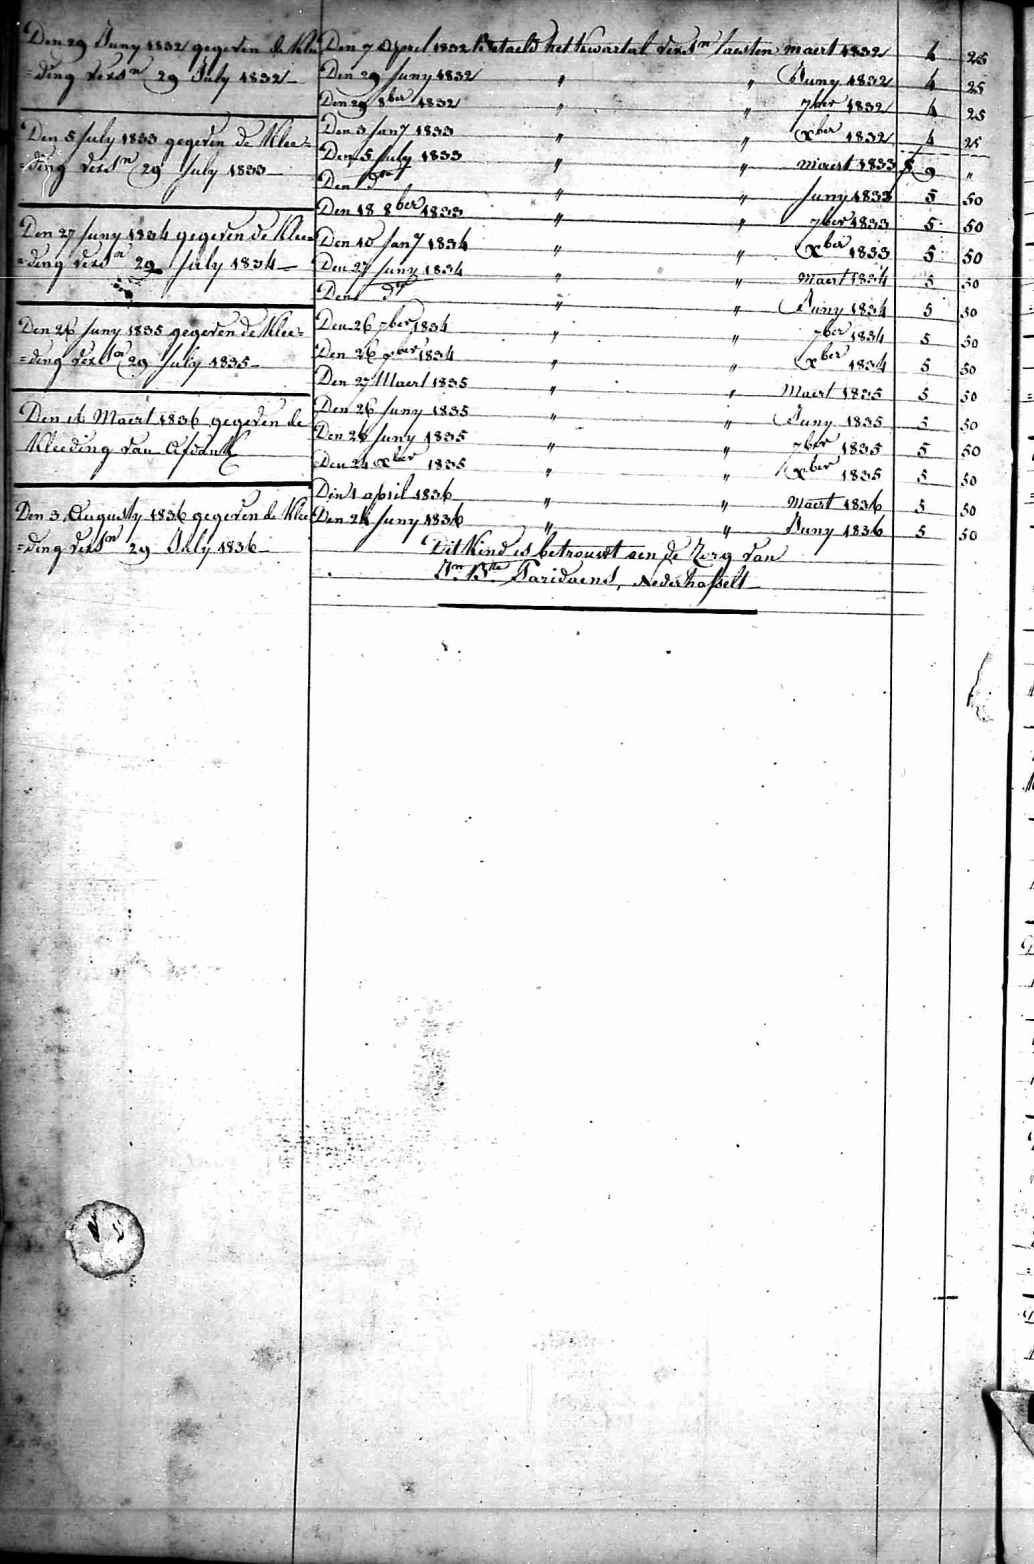 Den 29 Juny 1832 gegeven de klee
=ding versn 29 July 1832
Den 5 July 1833 gegeven de Klee=
=ding versn 29 July 1833
Den 27 Juny 1834 gegeven de klee
=ding versn 29 July 1834
Den 26 Juny 1835 gegeven de Klee=
=ding versn 29 July 1835
Den 16 Maert 1836 gegeven de
Kleeding van
Den 3 Augusty 1836 gegeven de klee
=ding versn 29 July 1836
Den 7 April 1832 Betaeld het kwartal versn laesten maert 1832 4 25
Den 29 Juny 1832 " " Juny 1832 4 25
Den 29 8ber 1832 " " 7ber 1832 4 25
Den 3 Jany 1833 " " Xber 1832 4 25
Den 5 July 1833 " " maert 1833 9 "
Den do " " Juny 1833 5 50
Den 18 8ber 1833 " " 7ber 1833 5 50
Den 10 Jany 1834 " " Xber 1833 5 50
Den 27 Juny 1834 " " maert 1834 5 50
Den do " " Juny 1834 5 50
Den 26 7ber 1834 " " 7ber 1834 5 50
Den 26 1834 " " Xber 1834 5 50
Den 27 Maert 1835 " " Maert 1835 5 50
Den 26 Juny 1835 " " Juny 1835 5 50
Den 28 Juny 1835 " " 7ber 1835 5 50
Den 24 Xber 1835 " " Xber 1835 5 50
Den 1 april 1836 " " Maert 1836 5 50
Den 28 Juny 1836 " " Juny 1836 5 50
Dit Kind is betrouwt aen de Zorg van
Jn Bte Faridaens, Nederhasselt